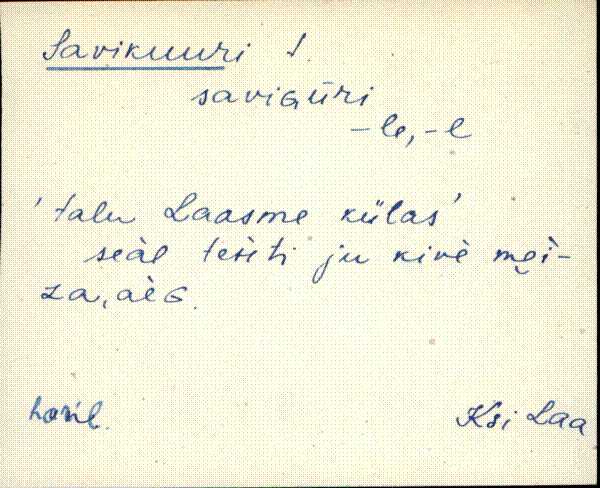 Savikuuri t
saviGūri
-le, -l
'talu Laasme külas'
seàl tešti ju kivè moì-
za, aèG.
haril.
Ksi Laa